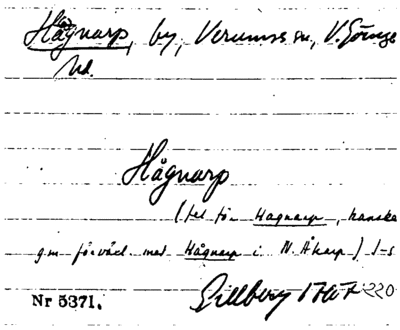 Hågnarp, by, Verums sn, V. Göinge
hd.
Hågnarp
(fel för Hagnarp, kanske
g.m förväxl. med Hågnarp i N. Åkarp) J-s
Gillberg 1767 220
Nr 5371.